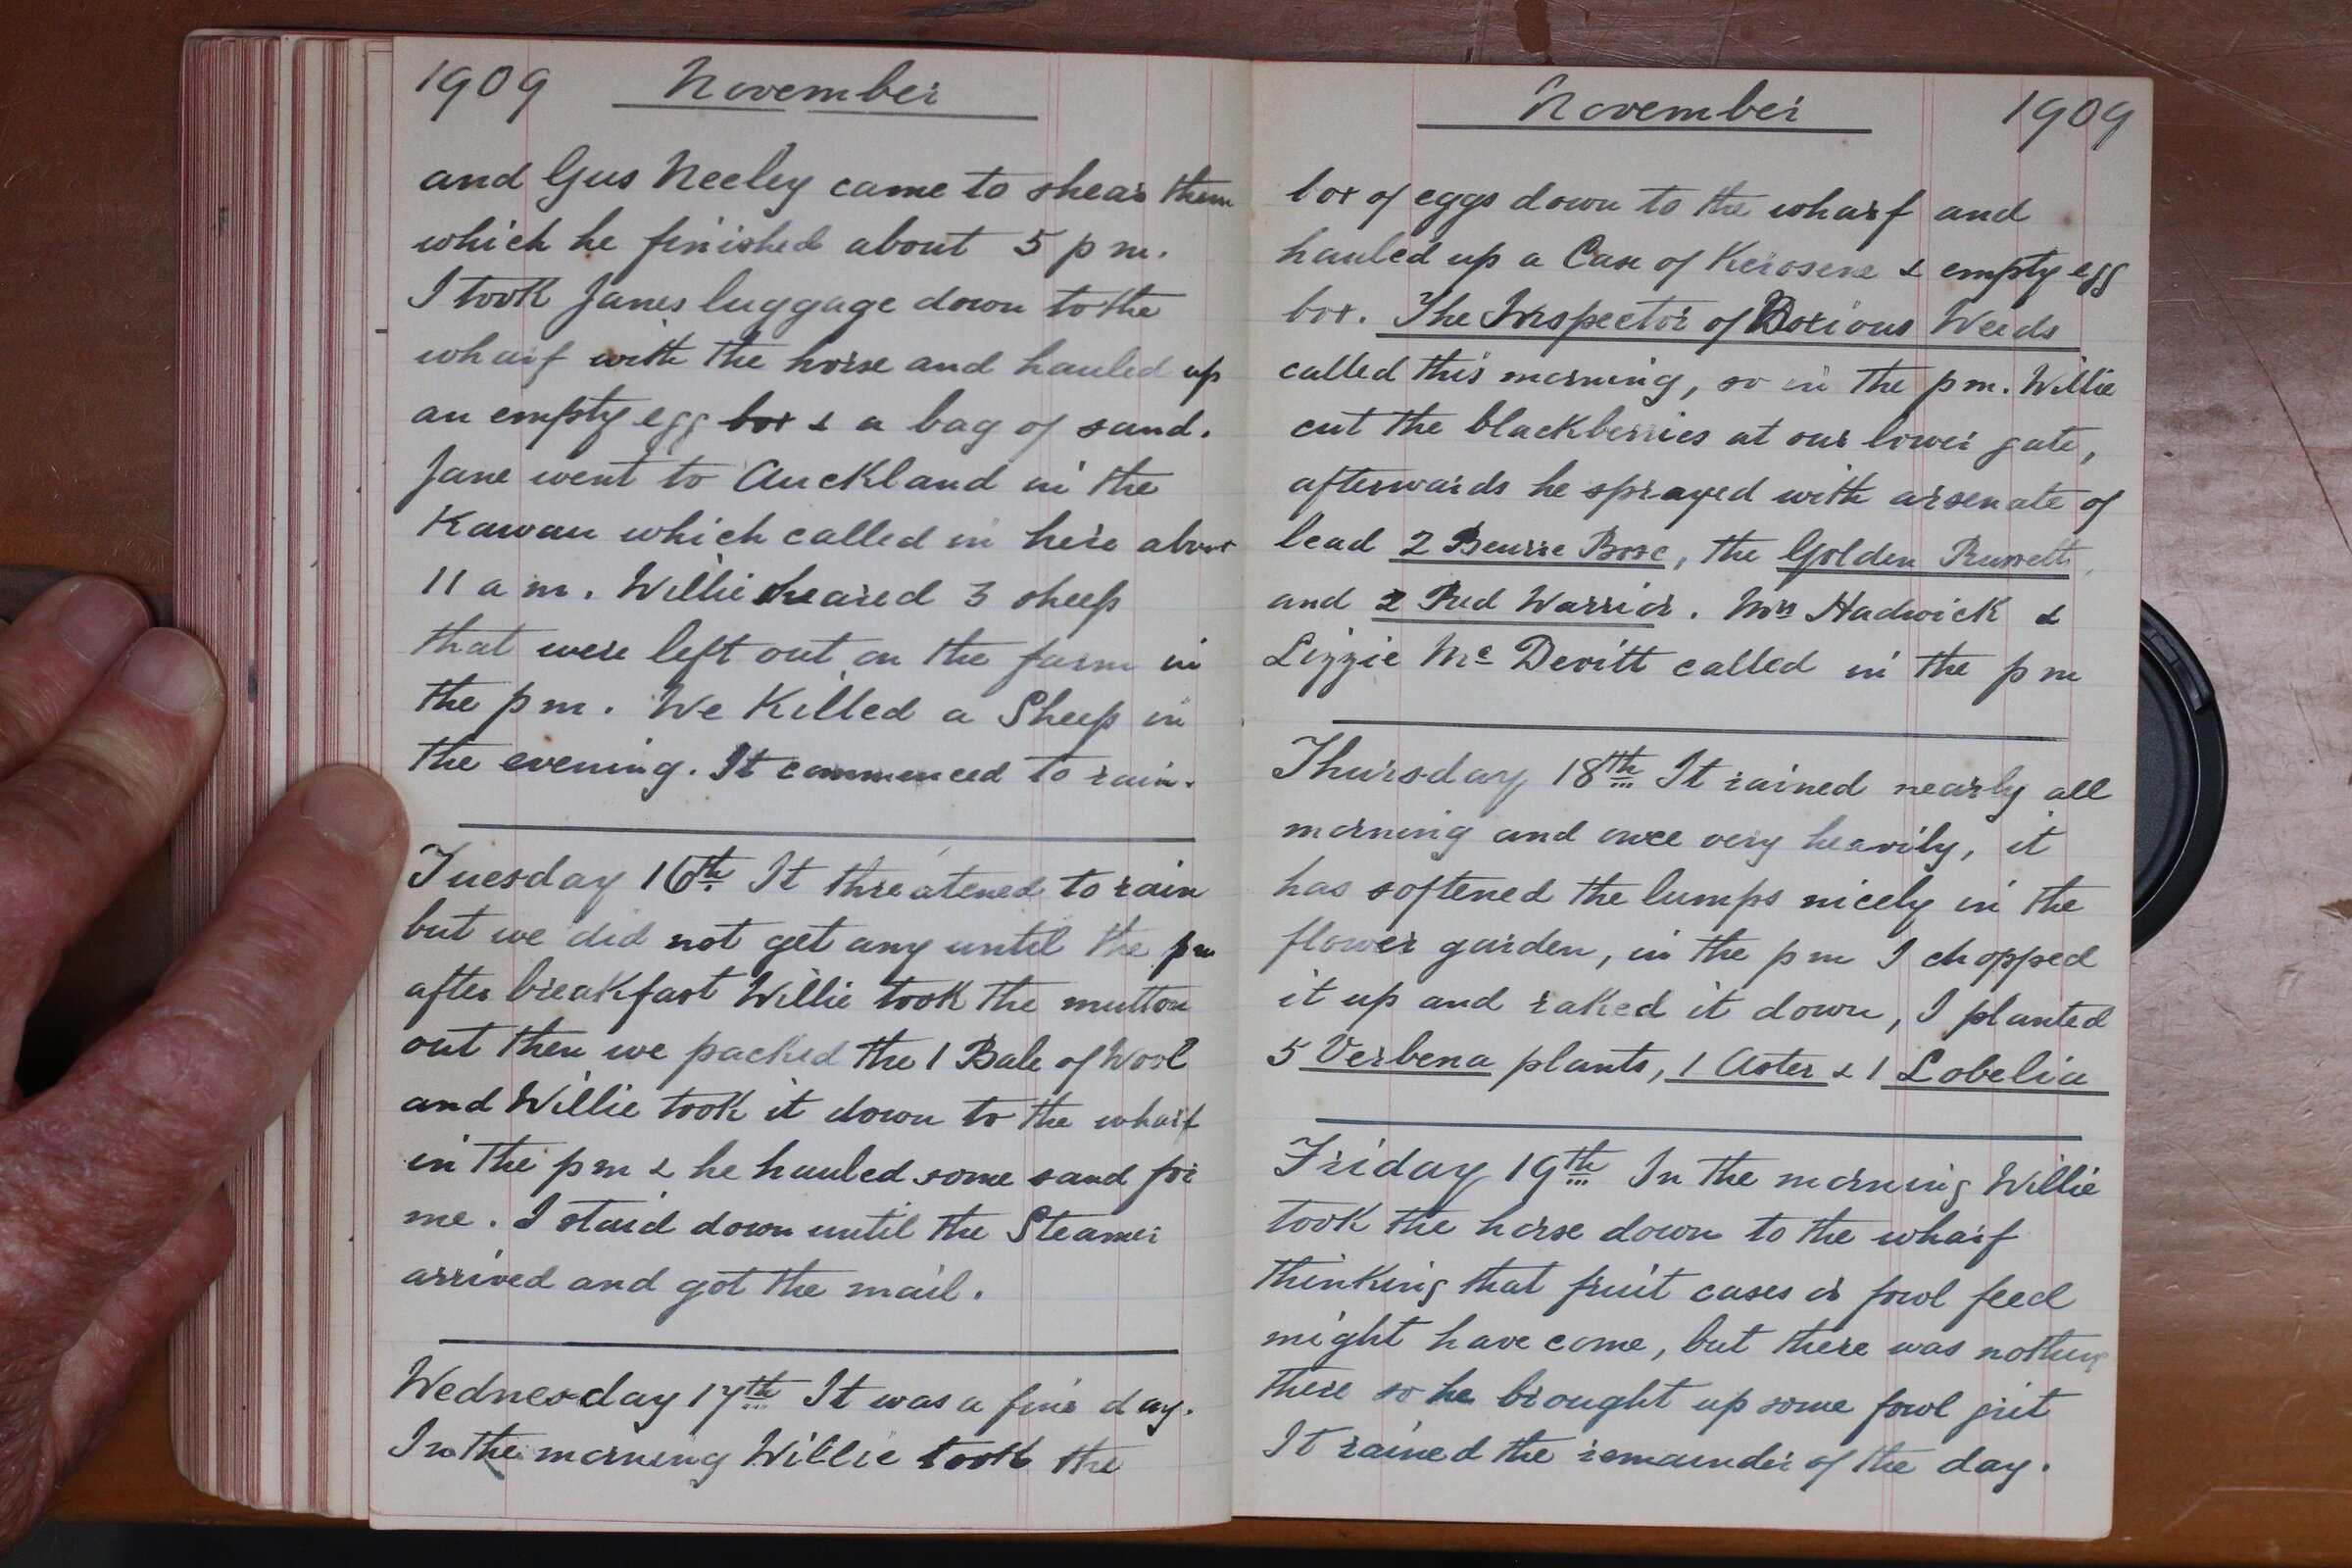 1909 November
and Gus Neeley came to shear them
which he finished about 5 p m.
I took Janes luggage down to the
wharf with the horse and hauled up
an empty egg box & a bag of sand.
Jane went to Auckland in the
Kawau which called in here about
11 a m. Willie sheared 3 sheep
that were left out on the farm in
the p m. We Killed a Sheep in
the evening. It commenced to rain.
Tuesday 16th It threatened to rain
but we did not get any until the pm
after breakfast Willie took the mutton
out then we packed the 1 Bale of Wool
and Willie took it down to the wharf
in the p m & he hauled some sand for
me. I staid down until the Steamer
arrived and got the mail.
Wednesday 17th It was a fine day.
In the morning Willie took the
November 1909
box of eggs down to the wharf and
hauled up a Case of Kerosene & empty egg
box. The Inspector of Noxious Weeds
called this morning, so in the p m. Willie
cut the blackberries at our lower gate,
afterwards he sprayed with arsenate of
lead 2 Beurre Bosc, the Golden Russett,
and 2 Red Warrior. Mrs Hadwick &
Lizzie Mc Devitt called in the p m
Thursday 18th It rained nearly all
morning and once very heavily, it
has softened the lumps nicely in the
flower garden, in the p m I chopped
it up and raked it down, I planted
5 Verbena plants, 1 Aster & 1 Lobelia
Friday 19th In the morning Willie
took the horse down to the wharf
thinking that fruit cases or fowl feed
might have come, but there was nothing
there so he brought up some fowl grit
It rained the remainder of the day.